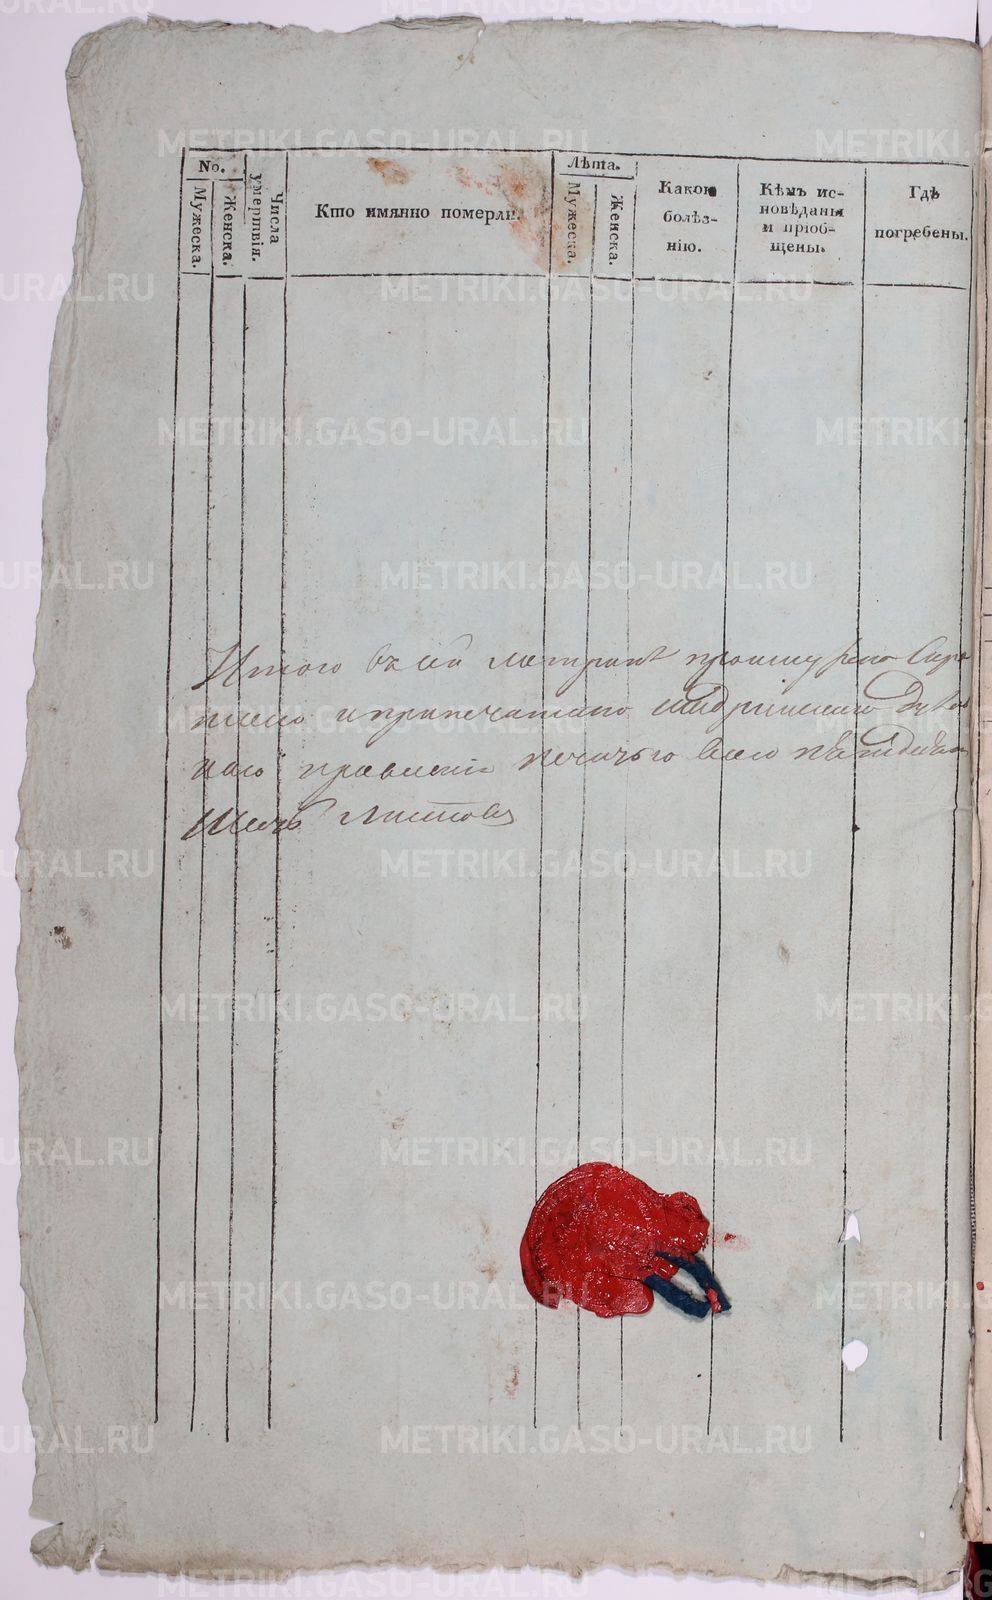 No.
Мужеска.
Женска.
Числа умертвія.
Кто имянно померли.
Лѣта.
Мужеска.
Женска.
Какою
болѣз-
нію.
Кѣмъ ис-
повѣданы
и пріоб-
щены.
Гдѣ
погребены.
Итого въ сей метрикѣ прошнуровано Скре
плено и припечатано Шадринскаго Духов
наго правленія печатью всего
листовъ
METRIKI.GASO-URAL.RU